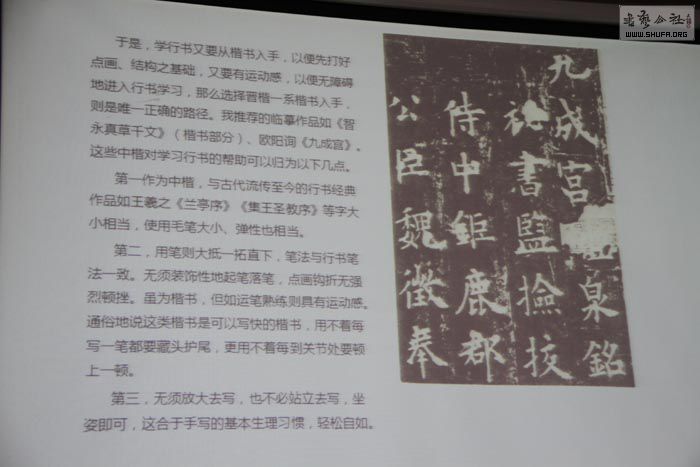 于是，学行书又要从楷书入手，以便先打好
点画、结构之基础，又要有运动感，以便无障碍
地进入行书学习，那么选择晋楷一系楷书入手，
则是唯一正确的路径。我推荐的临摹作品如《智
永真草千文》（楷书部分）、欧阳询《九成宫》。
这些中楷对学习行书的帮助可以归为以下几点。
第一作为中楷，与古代流传至今的行书经典
作品如王羲之《兰亭序》《集王圣教序》等字大
小相当，使用毛笔大小、弹性也相当。
第二，用笔则大抵一拓直下，笔法与行书笔
法一致。无须装饰性地起笔落笔，点画钩折无强
烈顿挫。虽为楷书，但如运笔熟练则具有运动感。
通俗地说这类楷书是可以写快的楷书，用不着每
写一笔都要藏头护尾，更用不着每到关节处要顿
上一顿。
第三，无须放大去写，也不必站立去写，坐
姿即可，这合于手写的基本生理习惯，轻松自如。
九成宫泉銘
祕書監撿挍
侍中鉅鹿郡
公臣魏徵奉
书艺公社
WWW.SHUFA.ORG